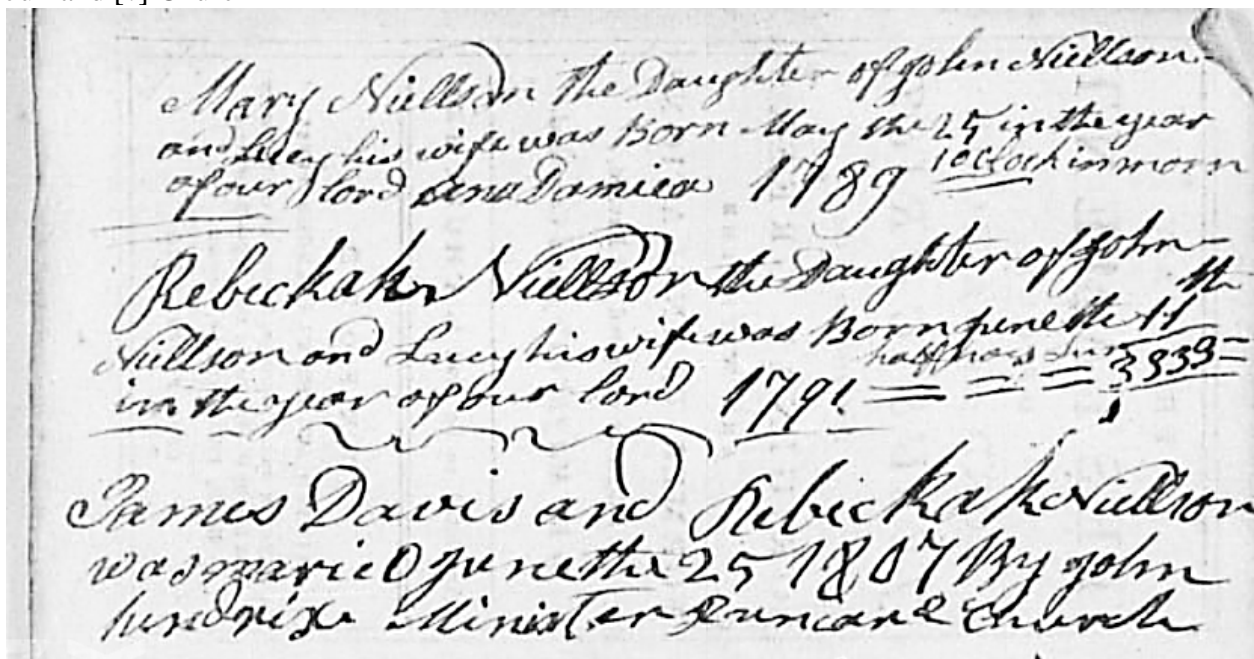 Mary Niellson the Daughter of John Niellson
and Lucy his wife was Born May the 25 in the year
of our lord 1789 10 Clock in morn
Rebeckah Niellson the Daughter of John
Niellson and Lucy his wife was Born June the 11 th
in the year of our lord 1791 half hour
James Davis and Rebeckah Niellson
was maried June the 25 1807 By John
hendrixe Minister Church